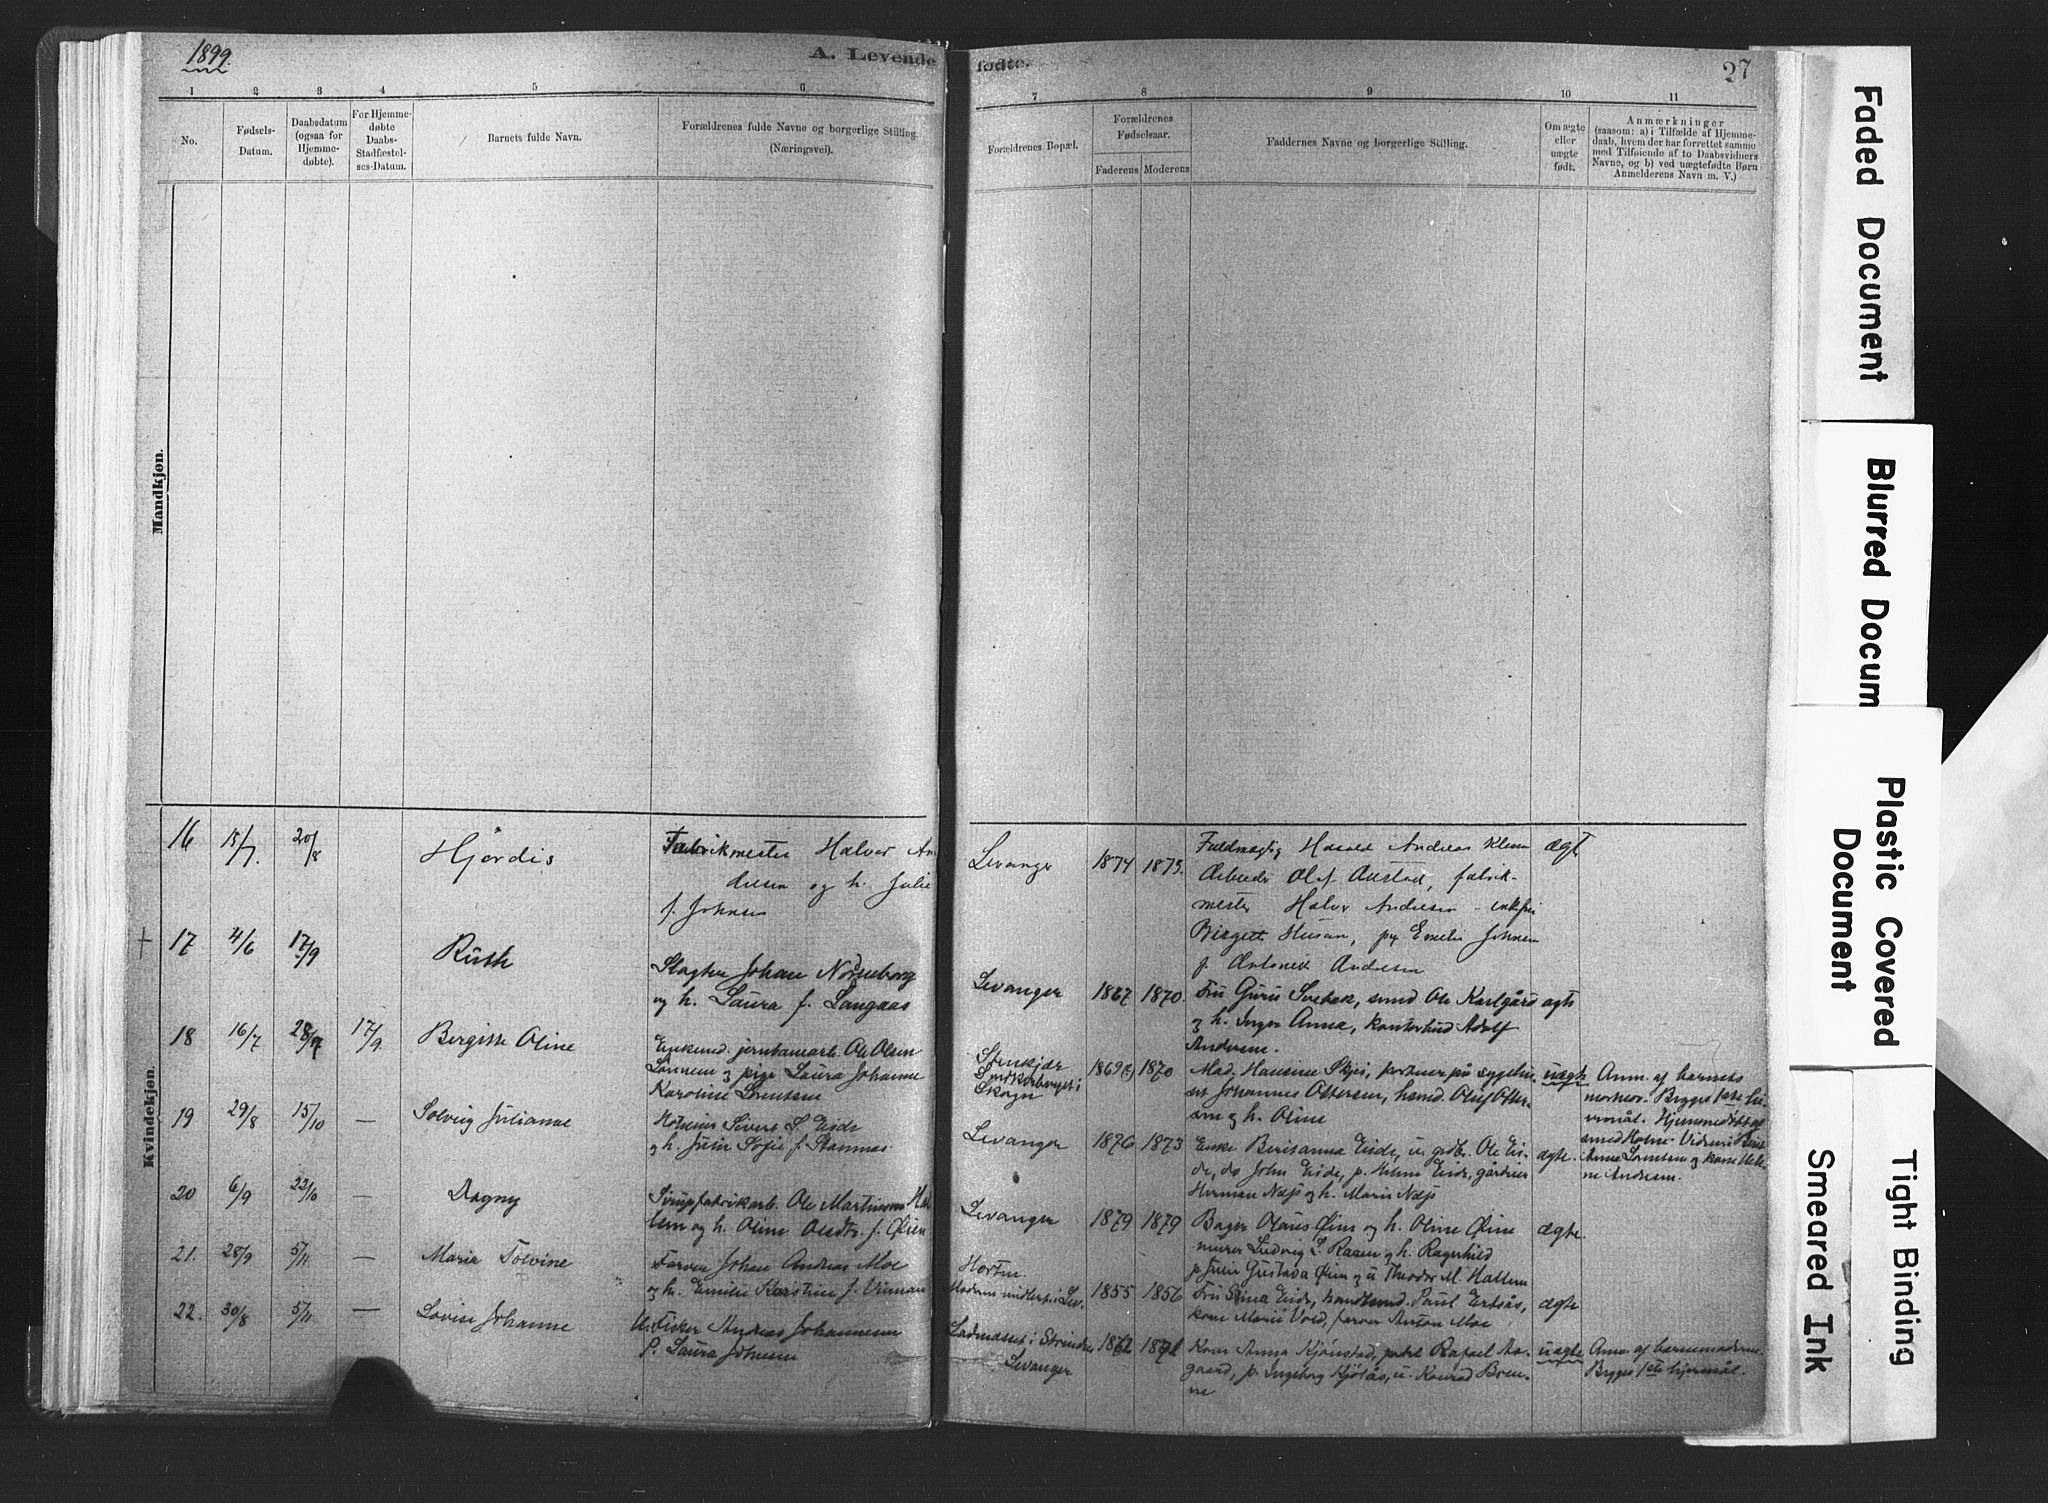 1899.
A. Levende
fødte.
27
1 2 3 4 5 6
7 8 9 10 11
No.
Fødsels-
Datum.
Daabsdatum
(ogsaa for
Hjemme-
døbte).
For Hjemme-
døbte
Daabs-
Stadfæstel-
ses-Datum.
Barnets fulde Navn.
Forældrenes fulde Navne og borgerlige Stilling.
(Næringsvei).
Forældrenes Bopæl.
Forældrenes
Fødselsaar.
Faderens
Moderens
Faddernes Navne og borgerlige Stilling.
Om ægte
eller
uægte
født.
Anmærkninger
(saasom: a) i Tilfælde af Hjemme-
daab, hvem der har forrettet samme
med Tilføiende af to Daabsvidners
Navne, og b) ved uægtefødte Børn
Anmelderens Navn m. V.)
Mandkjøn.
Kvindekjøn.
16 18/7. 20/8 Hjørdis
Fabrikmester Halvor An
dresen og h. Julie
f. Johnsen
Levanger 1874 1875.
Andreas
Arbeider Olaf Austad, fabrik-
mester Halvor Andresen
Birgitte Husan, pg Emelie Johnsen
Andresen
ægt
17 4/6 17/9 Ruth
Slagter Johan Norseborg
og h. Laura f. Langaas
Levanger 1867 1870.
Fru Guru Svebak, smed Ole Karlgård
og h. Inger Anna, Adolf
Andersen.
ægte
18 16/7 28/7 17/9 Birgitte Oline
Enkemd. jernbanearb. Ole Olsen
og pige Laura Johanne
Karoline Lorentsen
Stenkjær
Skogn
1869 1870
Mad. Hansine Skjei, portner på sygehu-
set Johannes Ottersen, handl. Oluf Otter-
sen og h. Oline
uægte
Anm. af barnets
mormor. Bygges 1ste lei-
ermål. Hjemmedøbt af
Andresen.
19 29/8 15/10 — Solveig Julianne
Sivert S. Eide
og h. Julie Sofie f. Stamnæs
Levanger 1876 1873
Enke Beritanna Eide, u. gdbr. Ole Ei-
de, do John Eide, p. Eide, gårdeier
Herman Næss og h. Marie Næss
ægte.
20 6/9 22/10 — Dagny
Sirupfabrikarb. Ole Martinsen Hal-
lem og h. Oline Olsdtr. f. Øien
Levanger 1879 1879
Bager Olaus Øien og h. Oline Øien
murer Ludvig L. Raaen og h. Ragnhild
p. Julie Gustava Øien og u. Theodor M. Hallem
ægte.
21. 28/9 5/11 — Maria Tolvine
Farver Johan Andreas Moe
og h. Emilie Kerstine f. Viman
Horten.
1855 1856
Fru Stina Eide, handelsmd. Paul Ertsås,
kone Marie Vold, farver Anton Moe
ægte
22. 30/8 5/11 — Lovise Johanne
U. Fisker Andreas Johannesen
P. Laura Johnsen
Ladmoset i Strinden
Levanger
1862 1871
Kone Anna Kjønstad, Rafael Aa-
gaard, p. Ingeborg Kjølås, u. Konrad Bren-
ne
uægte
Anm. af barnemoderen.
Bygges 1ste leiermål.
Faded Document
Blurred Docum
Plastic Covered
Document
Tight Binding
Smeared Ink